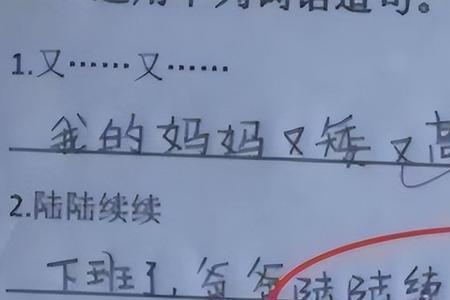 用下列词语造句。
1.又……又……
我的妈妈又矮又高
2.陆陆续续
下班了,爸爸陆陆续